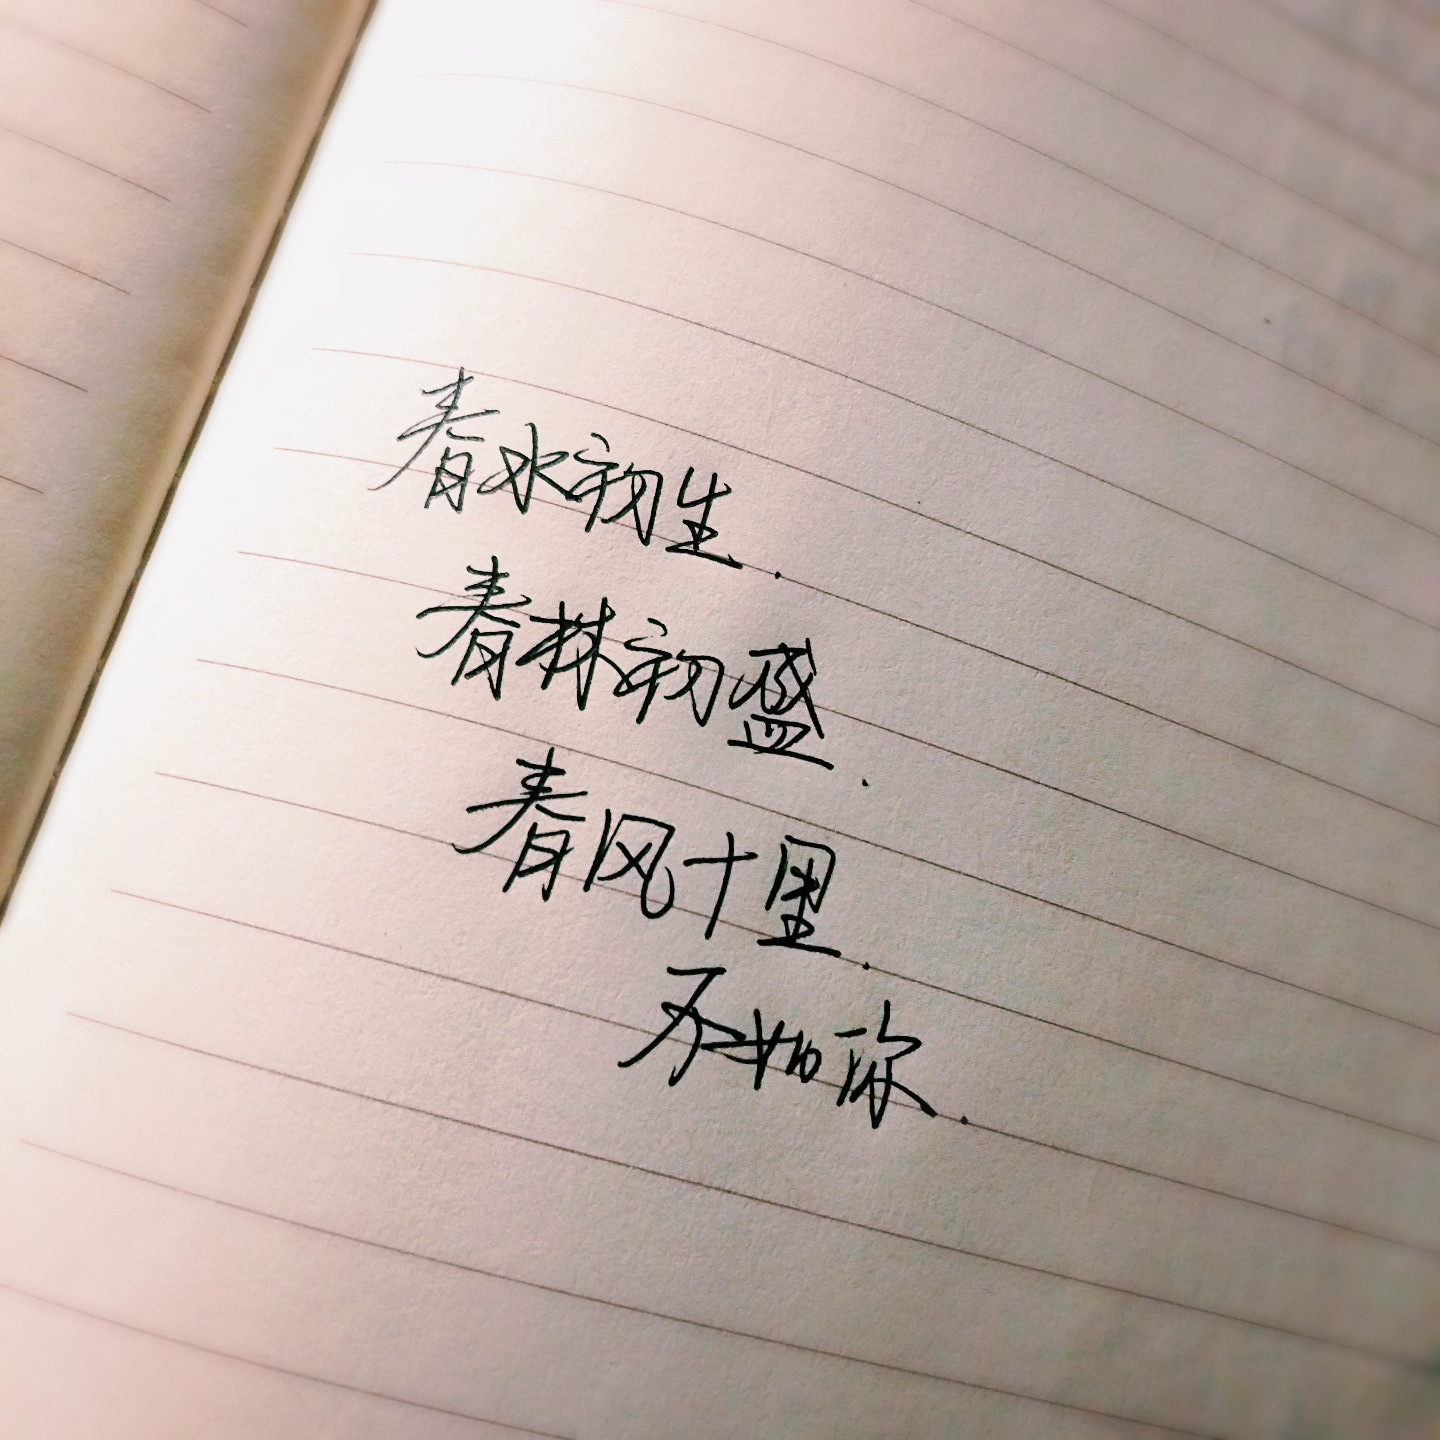 春水初生.
春林初盛.
春风十里.
不如你.